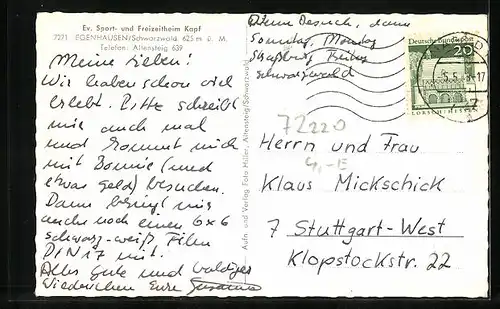 Ev. Sport- und Freizeitheim Kapf
7271 EGENHAUSEN/Schwarzwald 625 m ü. M.
Telefon: Altensteig 639
Meine Lieben!
Wir haben schon viel
erlebt. Bitte schreibt
mir auch mal
und kommt mich
mit Bonnie (und
etwas Geld) besuchen.
Dann bringt mir
auch noch einen 6x6
schwarz-weiß Film
DIN 17 mit.
Alles Gute und baldiges
Wiedersehen Eure Susanne
Aufn. und Verlag Foto Hiller, Altensteig/Schwarzwald
Besuch, dann
Sonntag, Montag
Straßburg,
Schwarzwald
Deutsche Bundespost
20
LORSCH/HESSEN
5.5. -17
72220
4,-E
Herrn und Frau
Klaus Mickschick
7 Stuttgart-West
Klopstockstr. 22